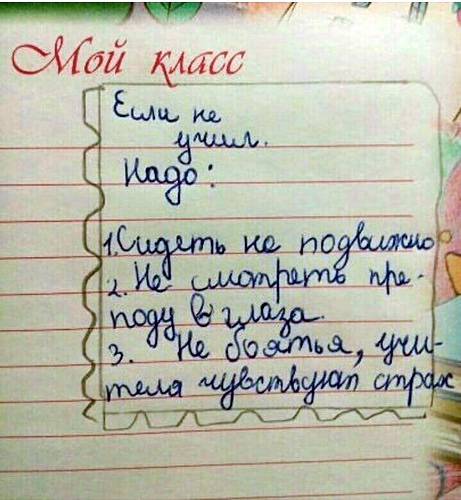 Мой класс
Если не
учил.
Надо:
1. Сидеть не подвижно
2. Не смотреть пре-
поду в глаза.
3. Не боятья, учи-
теля чувствуют страх